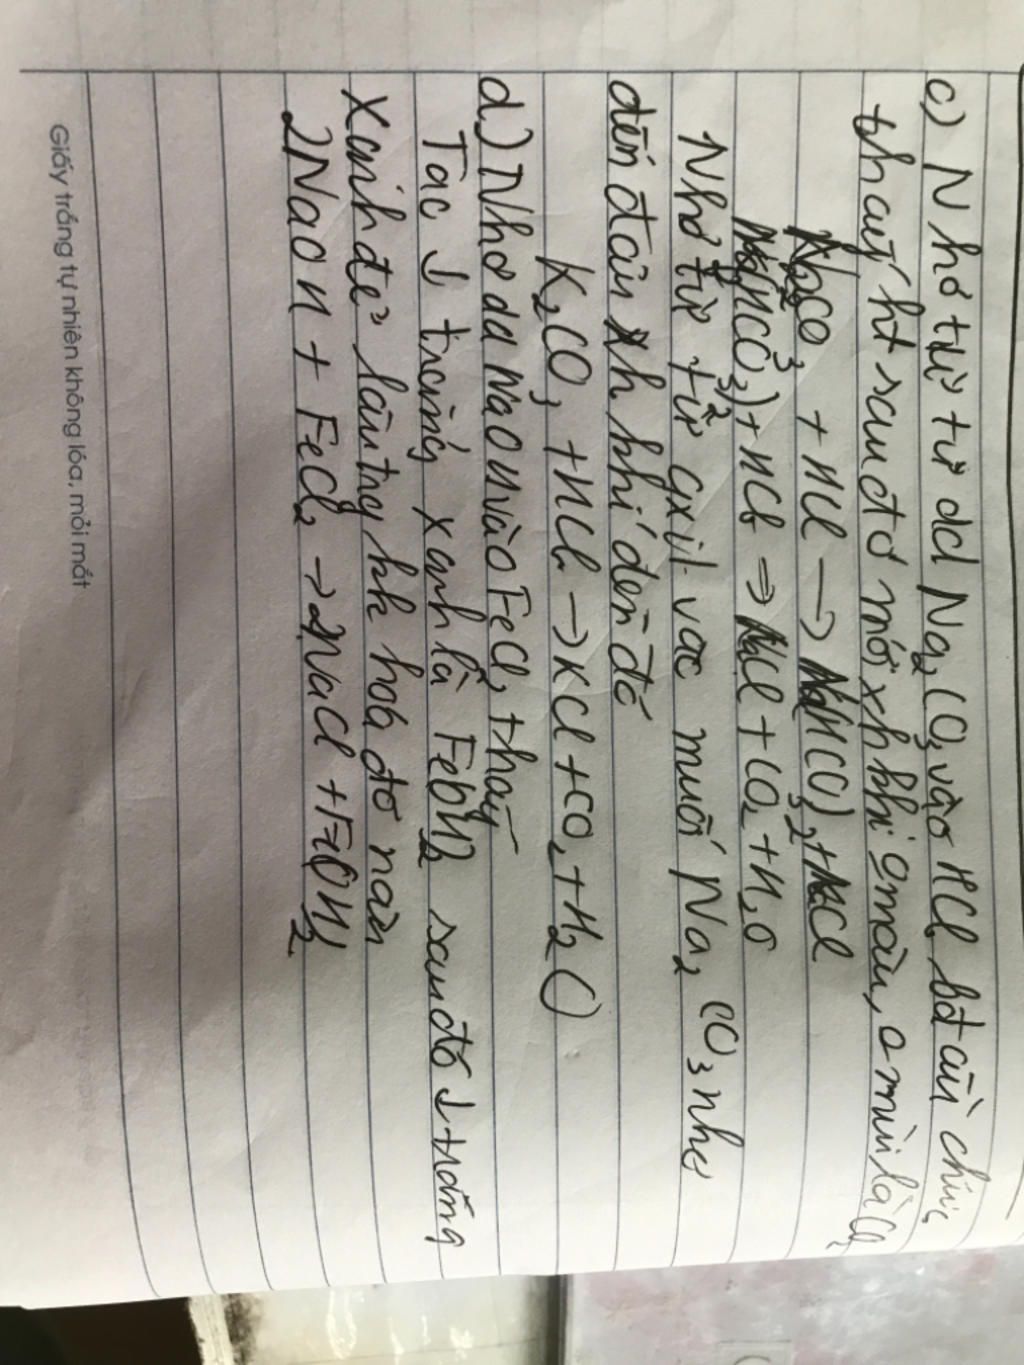 c) Nhỏ từ từ dd Na₂CO₃ vào HCl, bđ đầu chưa
thấy ht sau đó mới xh khí 0 màu, 0 mùi là CO₂
Na₂CO₃ + HCl → NaHCO₃ + NaCl
+ HCl → NaCl + CO₂ + H₂O
Nhỏ từ từ axit vào muối Na₂CO₃ nhỏ
đến đâu xh khí đến đó
K₂CO₃ + HCl → KCl + CO₂ + H₂O
d.) Nhỏ dd NaOH vào FeCl₂ thấy
Tạo ↓ trắng xanh là FeOH₂ sau đó ↓ trắng
xanh để lâu trg kk hoá đỏ nâu
2NaOH + FeCl₂ → 2NaCl + FeOH₂
Giấy trắng tự nhiên không lóa, mỏi mắt